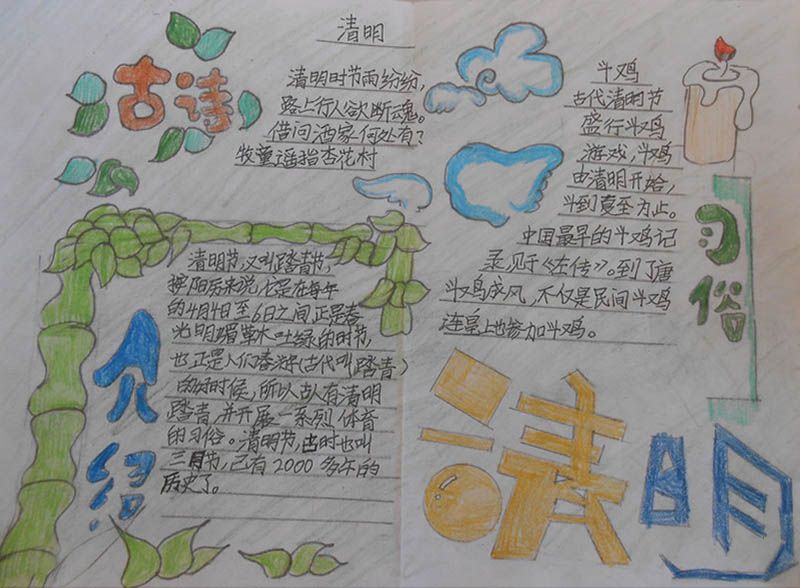 古诗
清明
清明时节雨纷纷，
路上行人欲断魂。
借问酒家何处有？
牧童遥指杏花村
介绍
清明节，又叫踏青节，
按阳历来说，它是在每年
的4月4日至6日之间，正是春
光明媚草木吐绿的时节，
也正是人们春游（古代叫踏青）
的好时候，所以古人有清明
踏青，并开展一系列体育
的习俗。清明节，古时也叫
三月节，已有2000多年的
历史了。
斗鸡
古代清明节
盛行斗鸡
游戏，斗鸡
由清明开始，
斗到夏至为止。
中国最早的斗鸡记
录见于《左传》。到了唐
斗鸡成风，不仅是民间斗鸡
连皇上也参加斗鸡。
习俗
清明